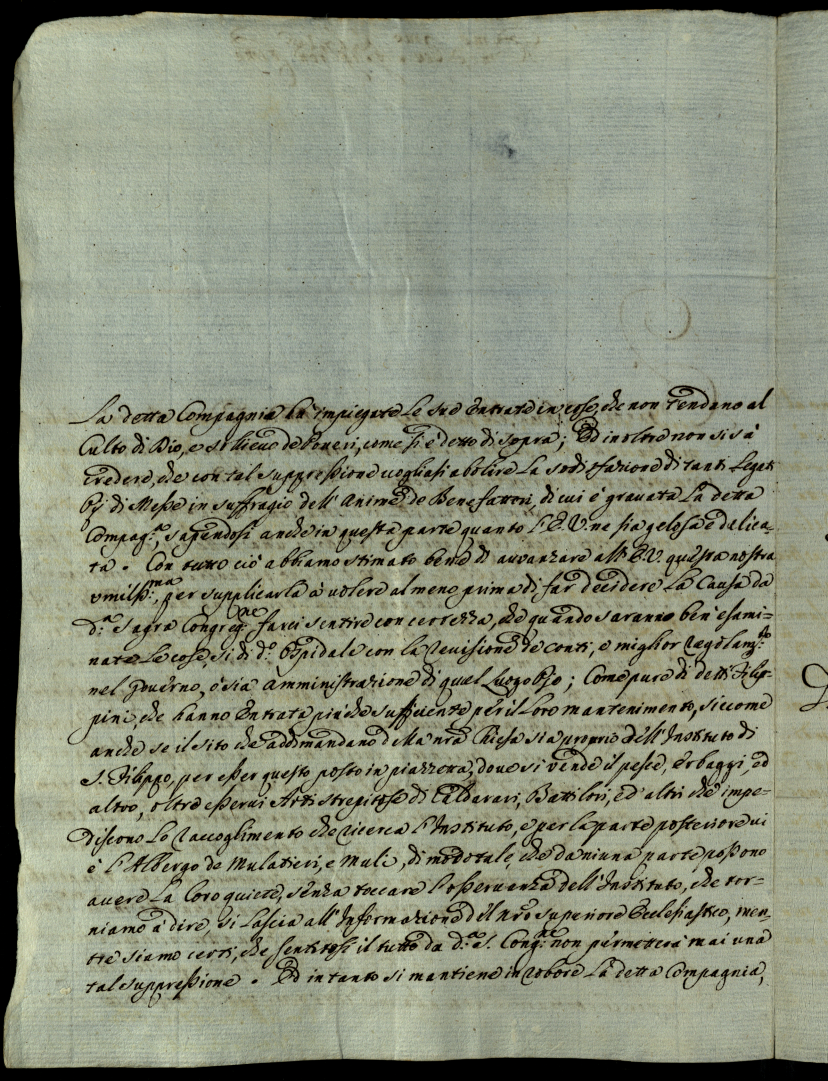 La detta Compagnia hà impiegate le sue Entrate in cose, che non rendano al
Culto di Dio, e sollievo de Poveri, come si è detto di sopra; Ed inoltre non si sà
credere, che con tal suppressione vogliasi abolire la sodisfazione di tanti Legati
Pij di Messe in suffragio dell'Anime de Benefattori, di cui è gravata la detta
Compag.ª, sapendosi anche in questa parte quanto l'E.V. ne sia gelosa e dalica-
ta. Con tutto ciò abbiamo stimato bene di avvanzare all'E.V. questa nostra
umiliss.ma, per supplicarla à volere almeno prima di far decidere la Causa da
d.ª Sagra Congreg.ne farci sentire con certezza, che quando saranno ben'esami-
nate le cose, sì di d.º Ospidale con la revisione de conti, e miglior regolam.to
nel governo, ò sia amministrazione di quel Luogo Pio; Come pure di detti Filip-
pini, che hanno Entrata più che sufficiente per il loro mantenimento, siccome
anche se il sito che addimandano della nrã Chiesa sia proprio dell'Instituto di
S. Filippo, per esser questo posto in piazzetta, dove si vende il pesce, erbaggi, ed
altro, oltre esservi Arti strepitose di Caldarari, Battilori, ed altri che impe-
discono lo raccoglimento che ricerca l'Instituto, e per la parte posteriore vi
è l'Albergo de Mulatieri, e Muli, di modo tale, che da niuna parte possono
avere la loro quiete, senza toccare l'osservanza dell'Instituto, che tor-
niamo à dire, si lascia all'Informazione del nrõ superiore Ecclesiastico, men-
tre siamo certi, che sentitosi il tutto da d.ª S. Cong.ne non permetterà mai una
tal suppressione. Ed in tanto si mantiene in robore la detta Compagnia,